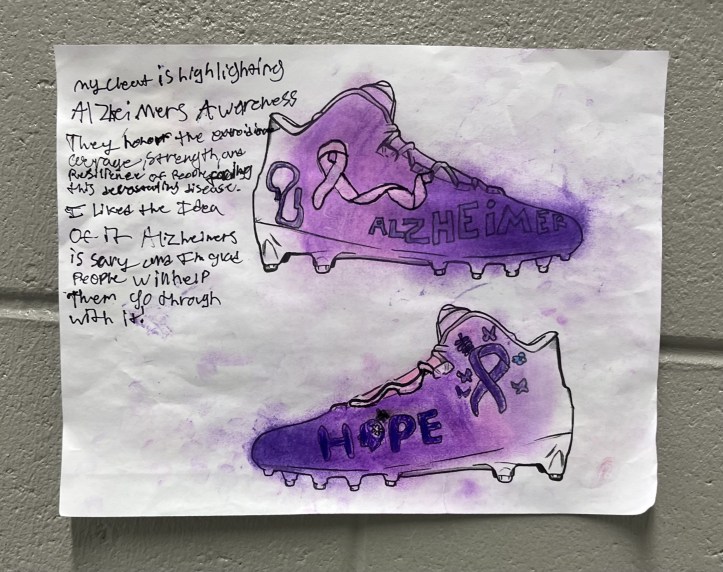 my cleat is highlighting
Alzheimers Awareness
They honor the
courage, strength, and
Resilience of People facing
this devastating disease.
I liked the Idea
Of it Alzheimers
is sary and I'm glad
People will help
Them go through
with it!
ALZHEIMER
HOPE